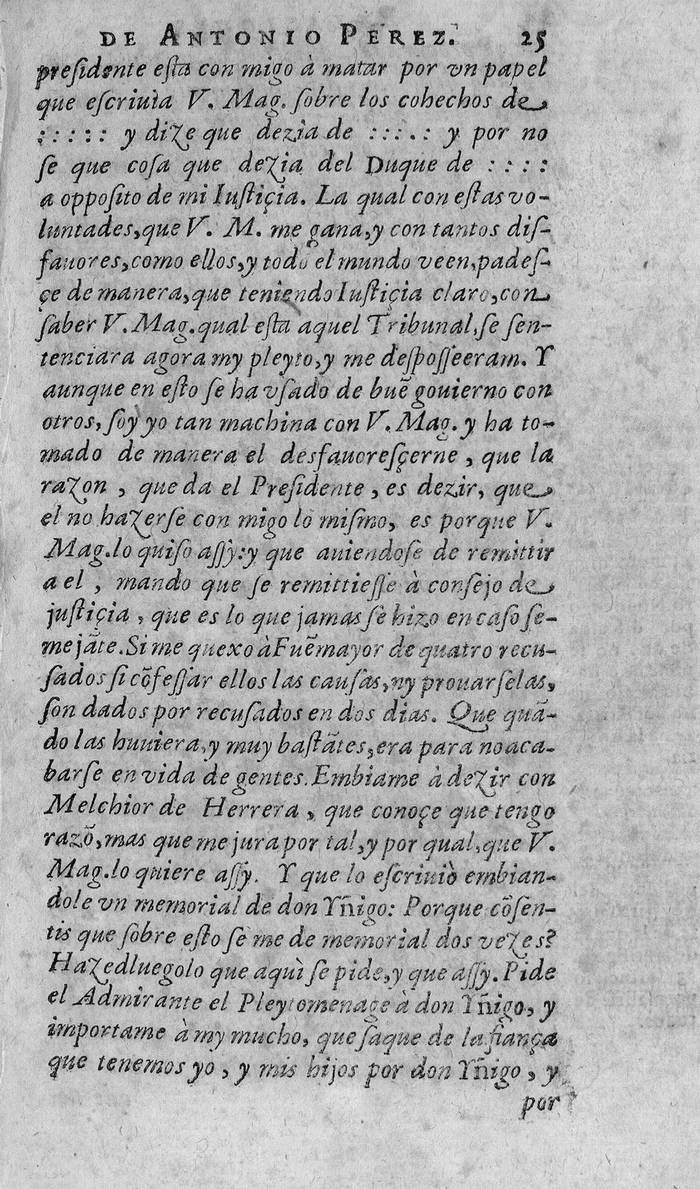 DE ANTONIO PEREZ. 25
preſidente eſta con migo à matar por vn papel
que eſcriuia V. Mag. ſobre los cohechos de
::::: y dize que dezia de ::::: y por no
ſe que coſa que dezia del Duque de ::::
a oppoſito de mi Iuſtiçia. La qual con eſtas vo-
luntades, que V. M. me gana, y con tantos diſ-
fauores, como ellos, y todo el mundo veen, padeſ-
çe de manera, que teniendo Iuſtiçia claro, con
ſaber V. Mag. qual eſta aquel Tribunal, ſe ſen-
tenciara agora my pleyto, y me deſpoſſeeram. Y
aunque en eſto ſe ha vſado de buẽ gouierno con
otros, ſoy yo tan machina con V. Mag. y ha to-
mado de manera el desfauoreſçerne, que la
razon, que da el Preſidente, es dezir, que
el no hazerſe con migo lo miſmo, es porque V.
Mag. lo quiſo aſſy: y que auiendoſe de remittir
a el, mando que ſe remittieſſe à conſejo de
juſtiçia, que es lo que jamas ſe hizo en caſo ſe-
mejãte. Si me quexo à Fuẽmayor de quatro recu-
ſados ſi cõfeſſar ellos las cauſas, ny prouarſelas,
ſon dados por recuſados en dos dias. Que quã-
do las huuiera, y muy baſtãtes, era para no aca-
barſe en vida de gentes. Embiame à dezir con
Melchior de Herrera, que conoçe que tengo
razõ, mas que me jura por tal, y por qual, que V.
Mag. lo quiere aſſy. Y que lo eſcriuiò embian-
dole vn memorial de don Yñigo: Porque cõſen-
tis que ſobre eſto ſe me de memorial dos vezes?
Hazed luego lo que aquì ſe pide, y que aſſy. Pide
el Admirante el Pleytomenage à don Yñigo, y
importame à my mucho, que ſaque de la fiança
que tenemos yo, y mis hijos por don Yñigo, y
por